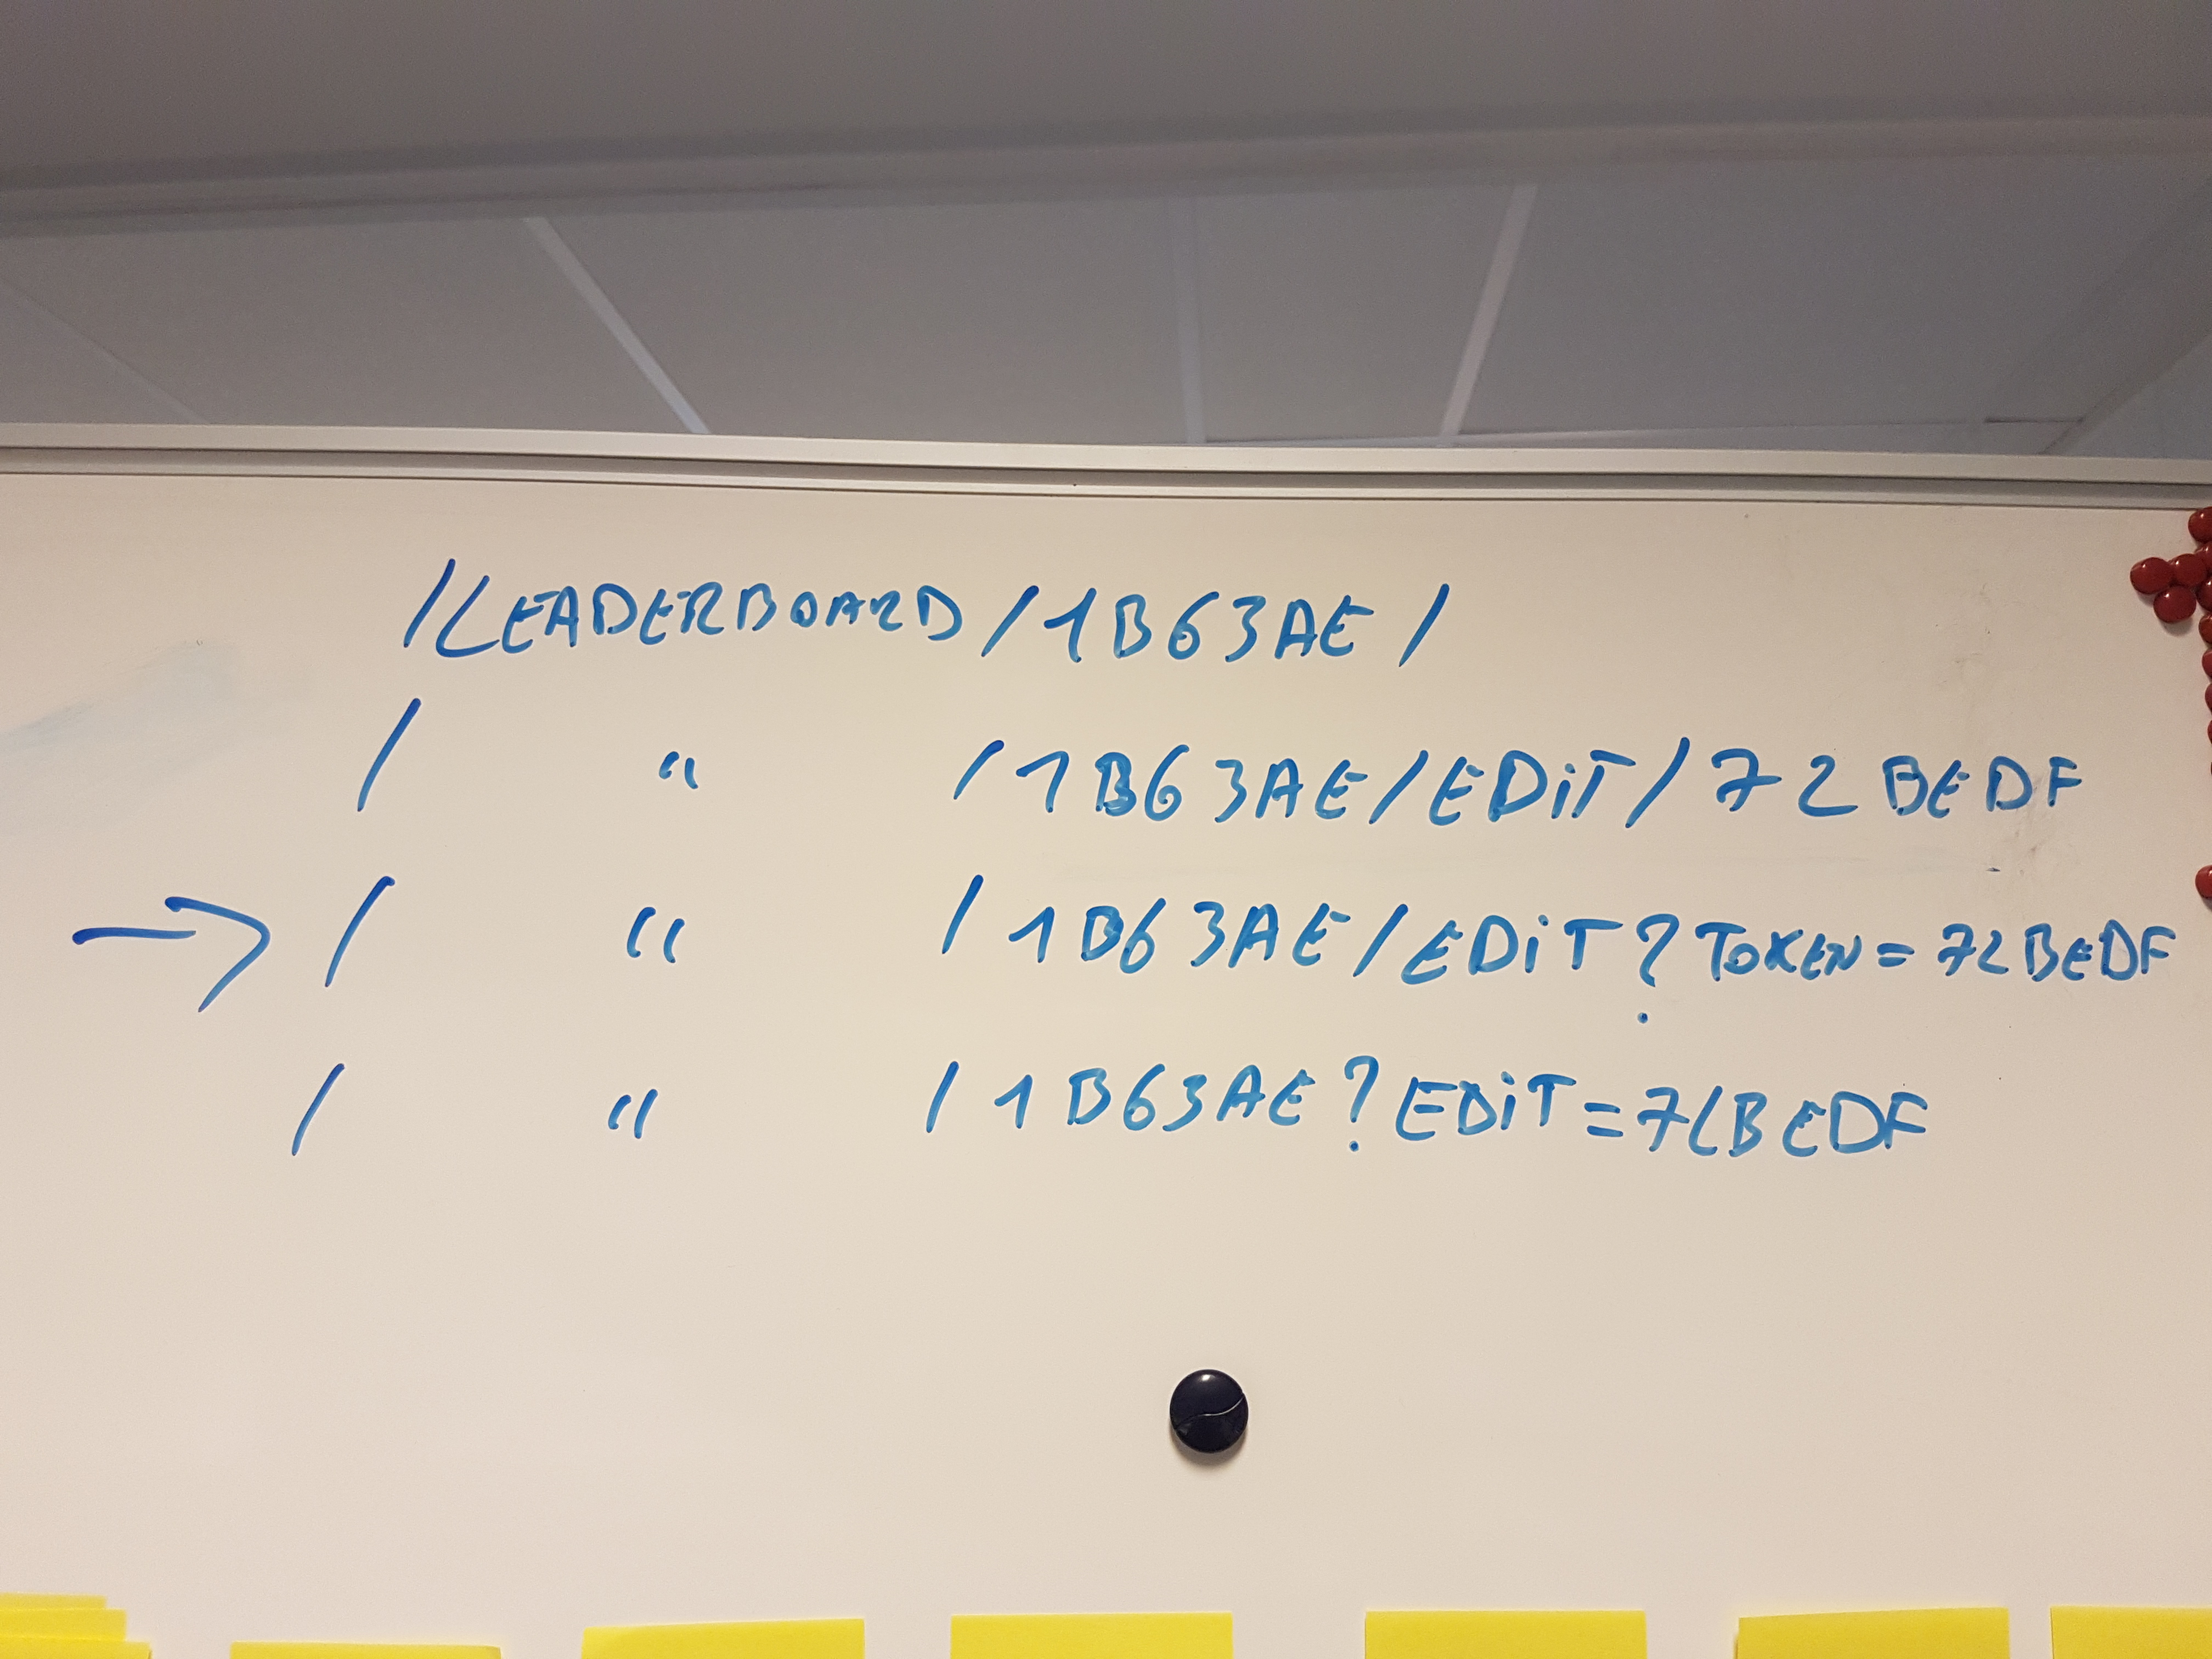 /LEADERBOARD/1B63AE/
/ " /1B63AE/EDiT/72BEDF
→ / " /1B63AE/EDiT?TOKEN=72BEDF
/ " /1B63AE?EDiT=72BEDF